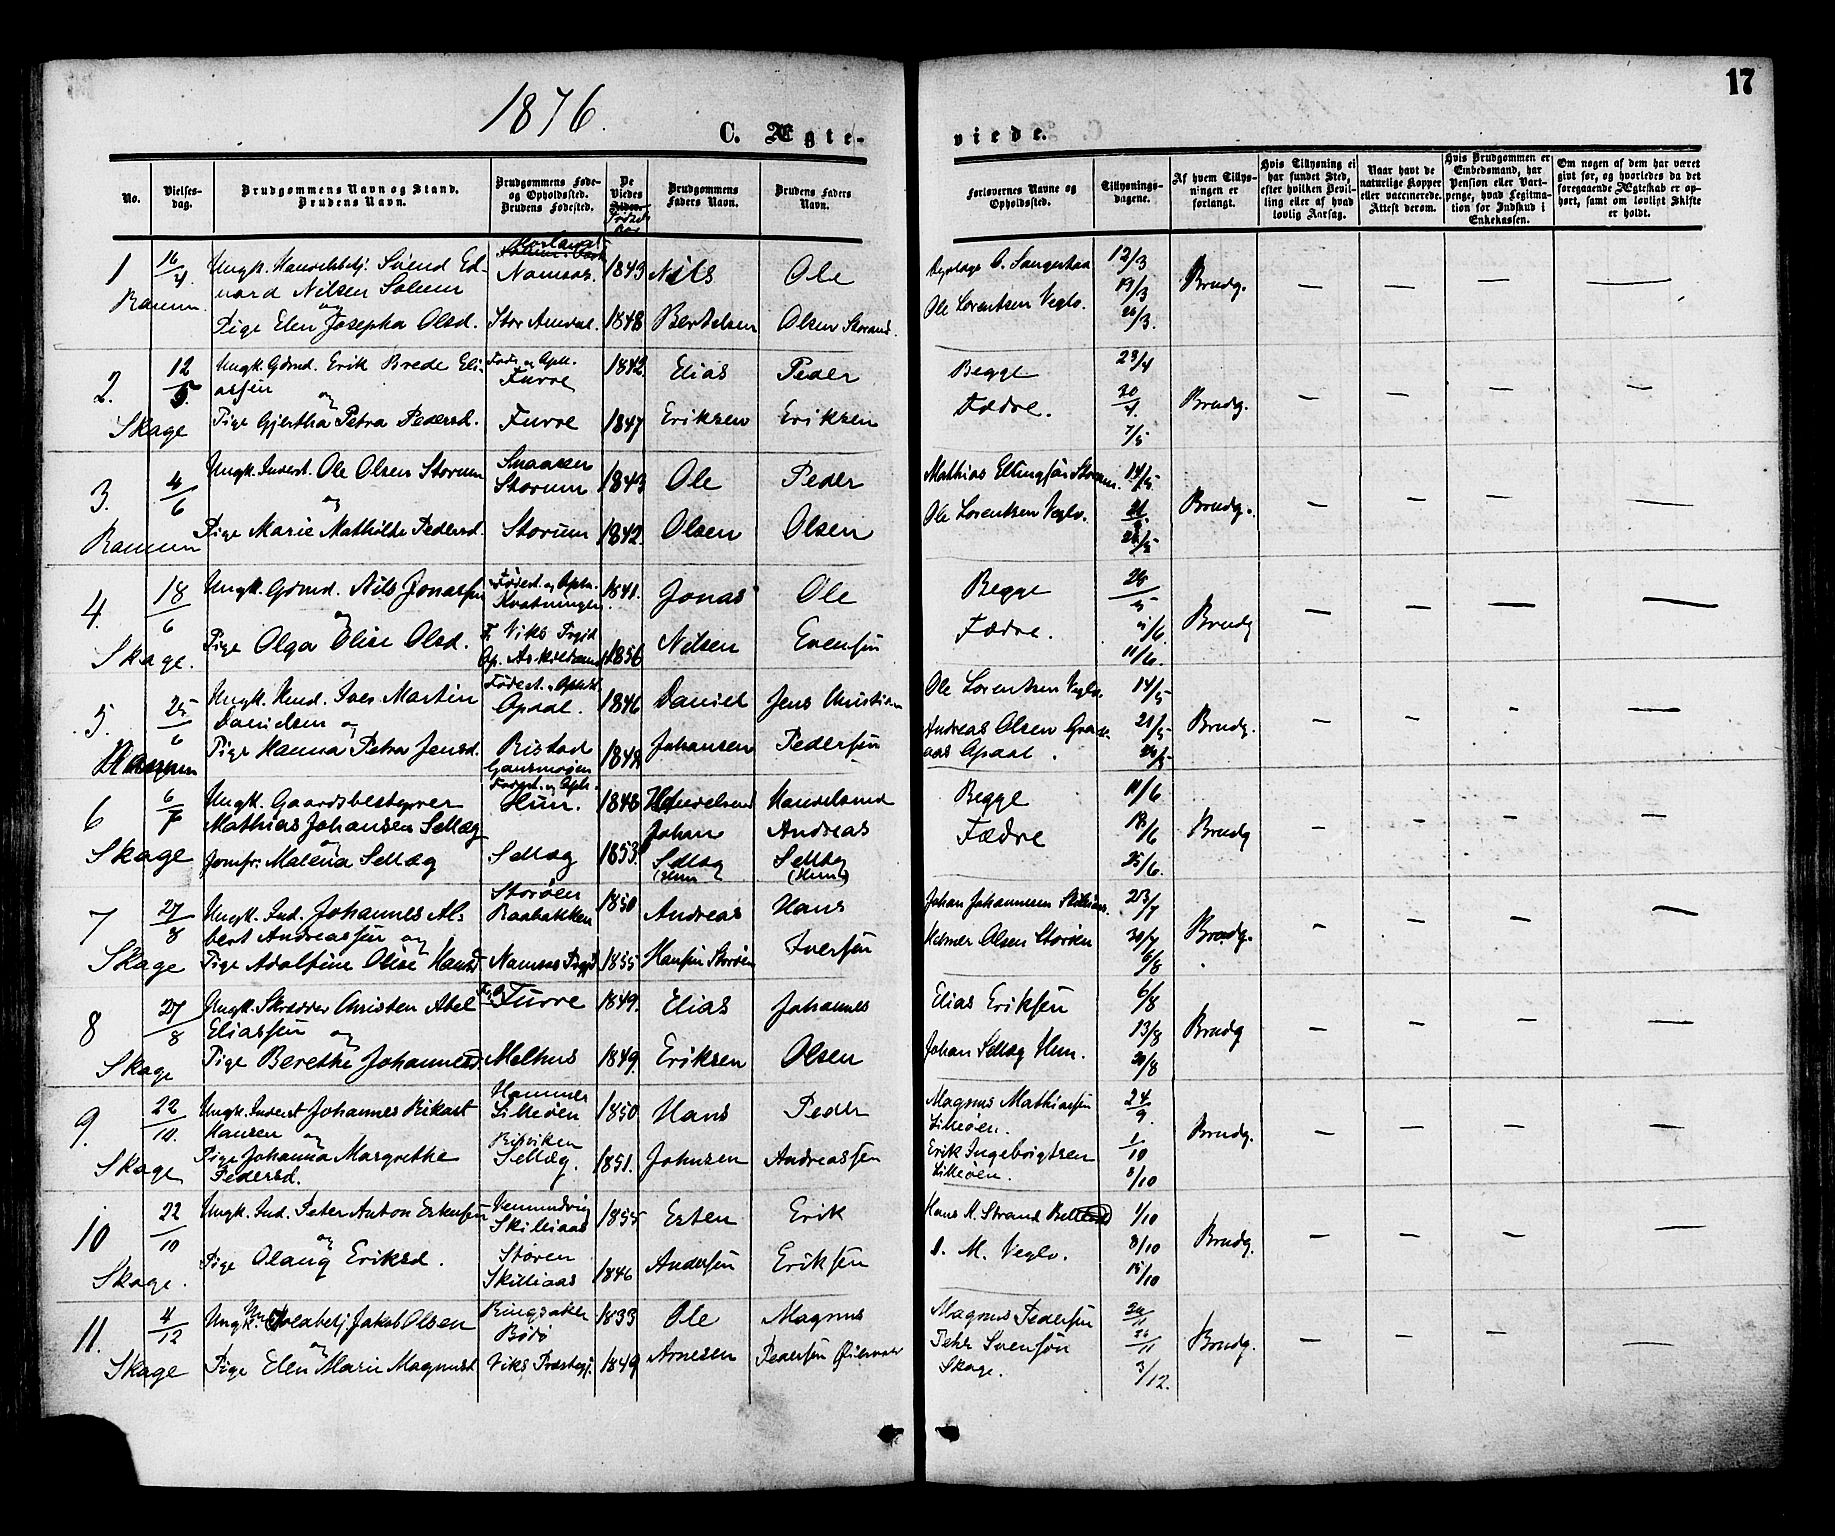 1876.
17
C. Ægte-
viede.
No.
Vielses-
dag.
Brudgommens Navn og Stand.
Brudens Navn.
Brudgommens Føde-
og Opholdssted.
Brudens Fødested.
De
Viedes
Alder.
Brudgommens
Faders Navn.
Brudens Faders
Navn.
Forlovernes Navne og
Opholdssted.
Tillysnings-
dagene.
Af hvem Tillys-
ningen er
forlangt.
Hvis Tillysning ei
har fundet Sted,
efter hvilken Bevil-
ling eller af hvad
lovlig Aarsag.
Naar havt de
naturlige Kopper
eller vaccinerede.
Attest derom.
Hvis Brudgommen er
Embedsmand, har
Pension eller Vart-
penge, hvad Legitima-
tion for Indskud i
Enkekassen.
Om nogen af dem har været
givt før, og hvorledes da det
foregaaende Ægteskab er op-
hørt, samt om lovligt Skifte
er holdt.
1
16/4
Ranum
Ungk. Handelsbetj. Svend Ed-
vard Nilsen Solum
og
Pige Elen Josepha Olsd.
Namsos.
1843
1848
Nils
Bertelsen
Ole
Olsen
Ole Lorentsen Veglo.
12/3
19/3
26/3.
Brudg.
2.
12/5.
Skage
Ungk. Gdmd. Erik Brede Eli-
assen
og
Pige Gjertha Petra Pedersd.
Føde og Oph.
Furre
Furre
1842
1847
Elias
Eriksen
Peder
Eriksen
Begge
Fædre.
23/4
30/4.
7/5
Brudg.
3.
4/6
Ranum
Ungk. Inderst. Ole Olsen Storum
og
Pige Marie Mathilde Pedersd.
Snaasen
Storum
Storum
1843
1842.
Ole
Olsen
Peder
Olsen
Mathias Ellingsen Storum.
Ole Lorentsen Veglo.
14/5.
21/5
28/5
Brudg.
4.
18/6
Skage.
Ungk. Gdmd. Nils Jonassen
og
Pige Olga Elise Olsd.
Fødest. og Opho.
Kvatningen
F. Viks Prgjd
1841.
1856
Jonas
Nilsen
Ole
Evensen
Begge
Fædre.
28/5
5/6.
11/6.
Brudg
5.
25/6
Ranum
Ungk. Iver Martin
Danielsen og
Pige Hanna Petra Jensd.
Fødest. og Ophst.
Opdal.
Ristad
1846
1848
Daniel
Johansen
Jens Christian
Pedersen
Ole Lorentsen Veglo.
Andreas Olsen
Opdal.
14/5
21/5
28/5
Brudg.
6
6/7
Skage
Ungk. Gaardsbestyrer
Mathias Johansen Sellæg
og
Jomfr. Malena Sellæg
Fødest. og Oph.
Hun.
Sellæg
1848
1853.
Handelsmd
Johan
Sellæg
(Hun)
Handelsmd
Andreas
Sellæg
(Hun)
Begge
Fædre
11/6
18/6
25/6.
Brudg
7
27/8
Skage
Ungk. Ind. Johannes Al-
bert Andreassen og
Pige Adolfine Olise Hansd.
Storøen
Raabakken
Namsos Prgjd
1850
1855
Andreas
Hansen Storøen
Hans
Iversen
Johan Johannesen
Helmer Olsen Storøen
23/7
30/7
6/8
Brudg.
8
27/8
Skage
Ungk. Skræder Christen Abel
Eliassen og
Pige Berethe Johannesd.
Furre
Melhus
1849.
1849.
Elias
Eriksen
Johannes
Olsen
Elias Eriksen
Johan Sellæg Hun.
6/8
13/8
20/8
Brudg
9.
22/10.
Skage
Ungk. Inderst Johannes Rikart
Hansen og
Pige Johanna Margrethe
Pedersd.
Hammer
Lilleøen
Rosviken
Sellæg.
1850.
1851.
Hans
Johnsen
Peder
Andreassen
Magnus Mathiassen
Lilleøen.
Erik Ingebrigtsen
Lilleøen.
24/9.
1/10
8/10
Brudg.
10
22/10
Skage.
Ungk. Ind. Peter Anton Estensen
og
Pige Olaug Eriksd.
Vemundvig
Skilliaas
Støren
Skilliaas
1855
1846
Esten
Andersen
Erik
Eriksen
Hans H. Strand
O. M. Veglo.
1/10
8/10
15/10
Brudg.
11.
4/12
Skage
Ungk. Jakob Olsen
og
Pige Elen Marie Magnusd
Ringsaker
Bodø
Viks Præstegj.
1833
1849
Ole
Arnesen
Magnus
Pedersen
Magnus Pedersen
Peter Svensøn
Skage.
20/11
26/11
3/12.
Brudg.